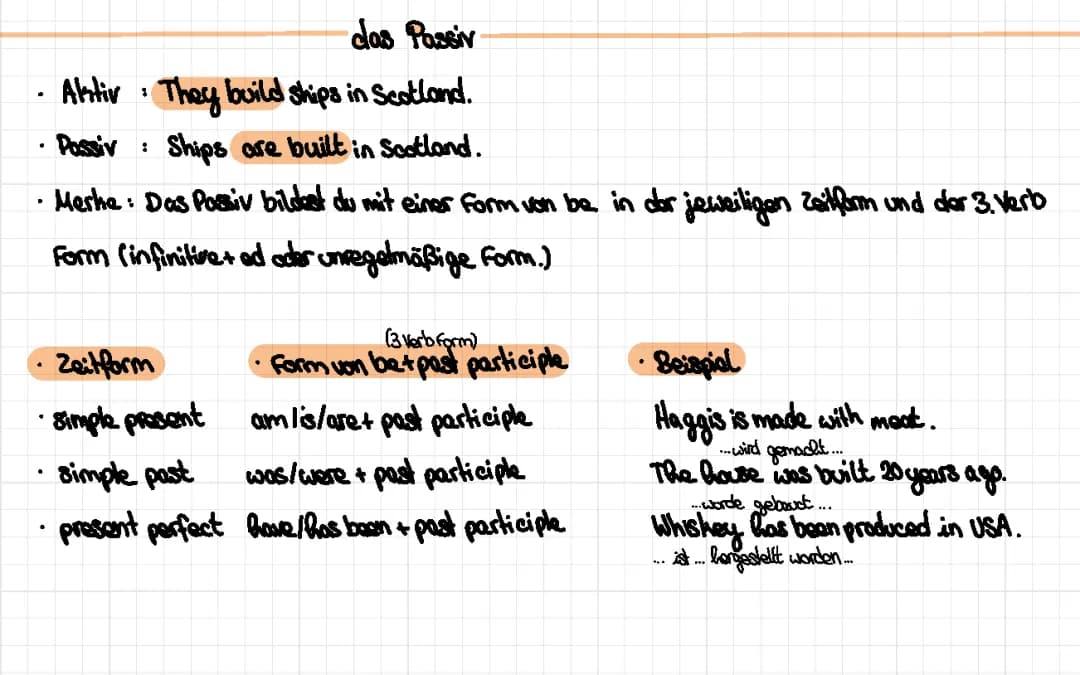 das Passiv
· Aktiv : They build ships in Scotland.
· Passiv : Ships are built in Scotland.
· Merke: Das Passiv bildest du mit einer Form von be in der jeweiligen Zeitform und der 3. Verb
Form (infinitive + ed oder unregelmäßige Form.)
(3 Verb Form)
· Zeitform · Form von be + past participle · Beispiel
· simple present am/is/are + past participle Haggis is made with meat.
...wird gemacht...
· simple past was/were + past participle The house was built 20 years ago.
...worde gebaut...
· present perfect have/has been + past participle Whiskey has been produced in USA.
... ist ... hergestellt worden...